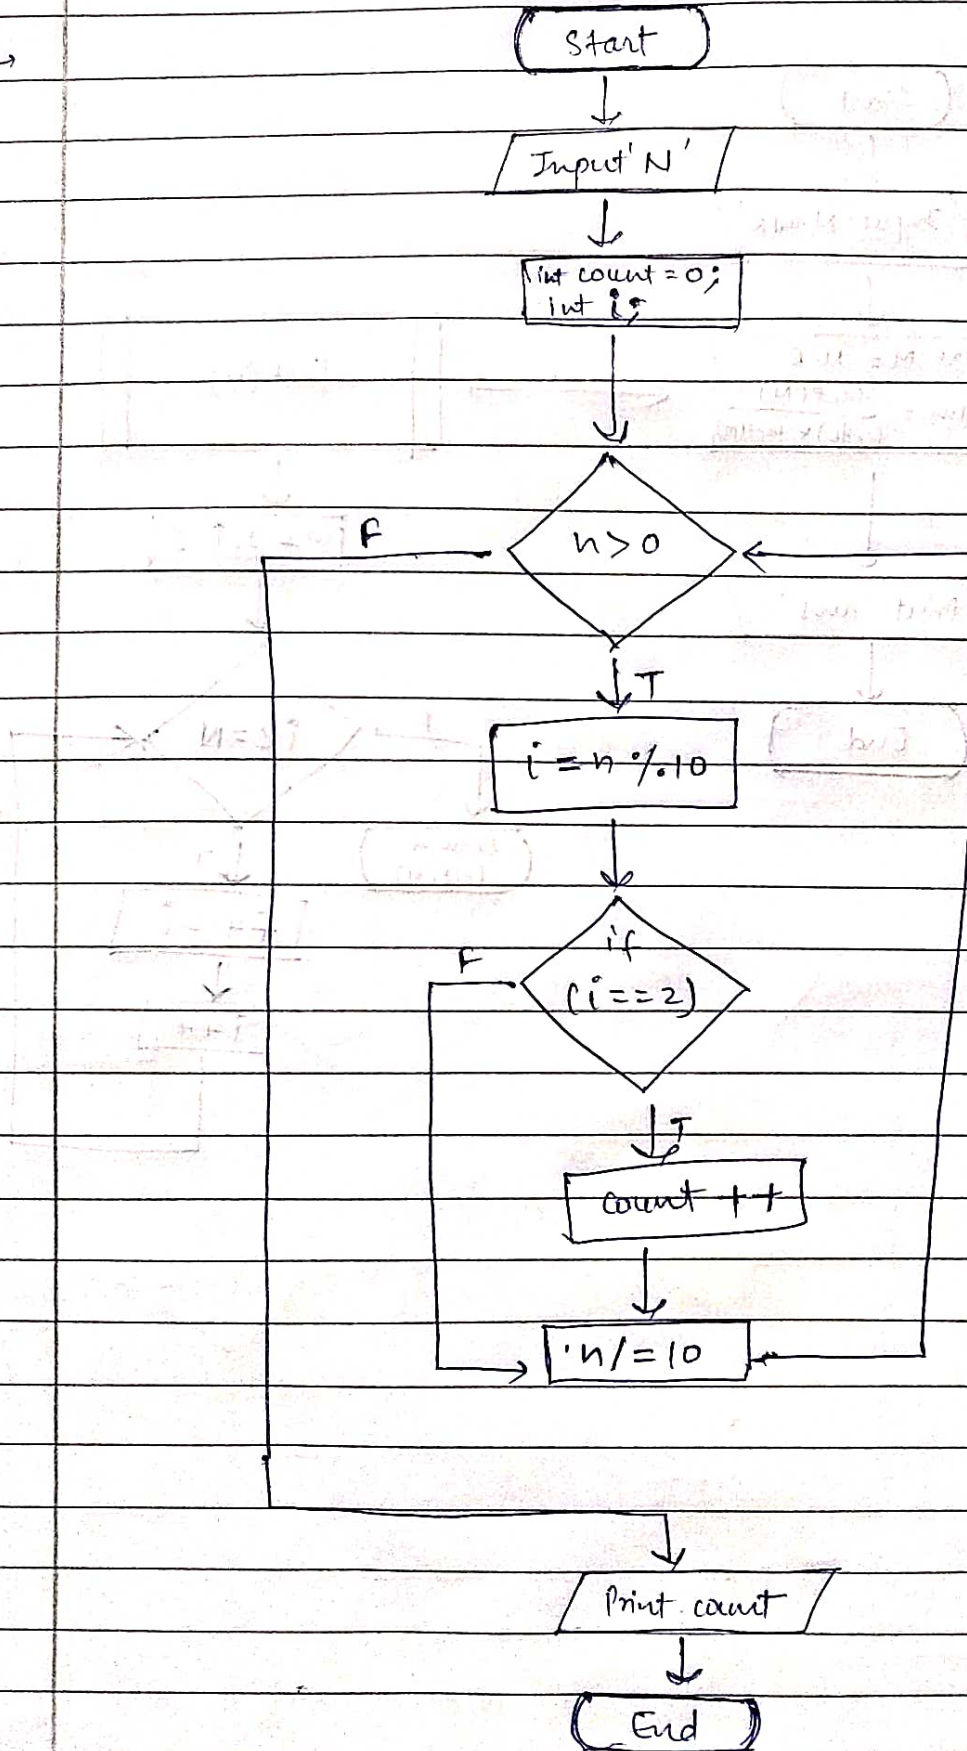 Start
Input 'N'
int count = 0;
int i;
n > 0
F
T
i = n % 10
if
(i == 2)
F
T
count ++
n /= 10
Print count
End